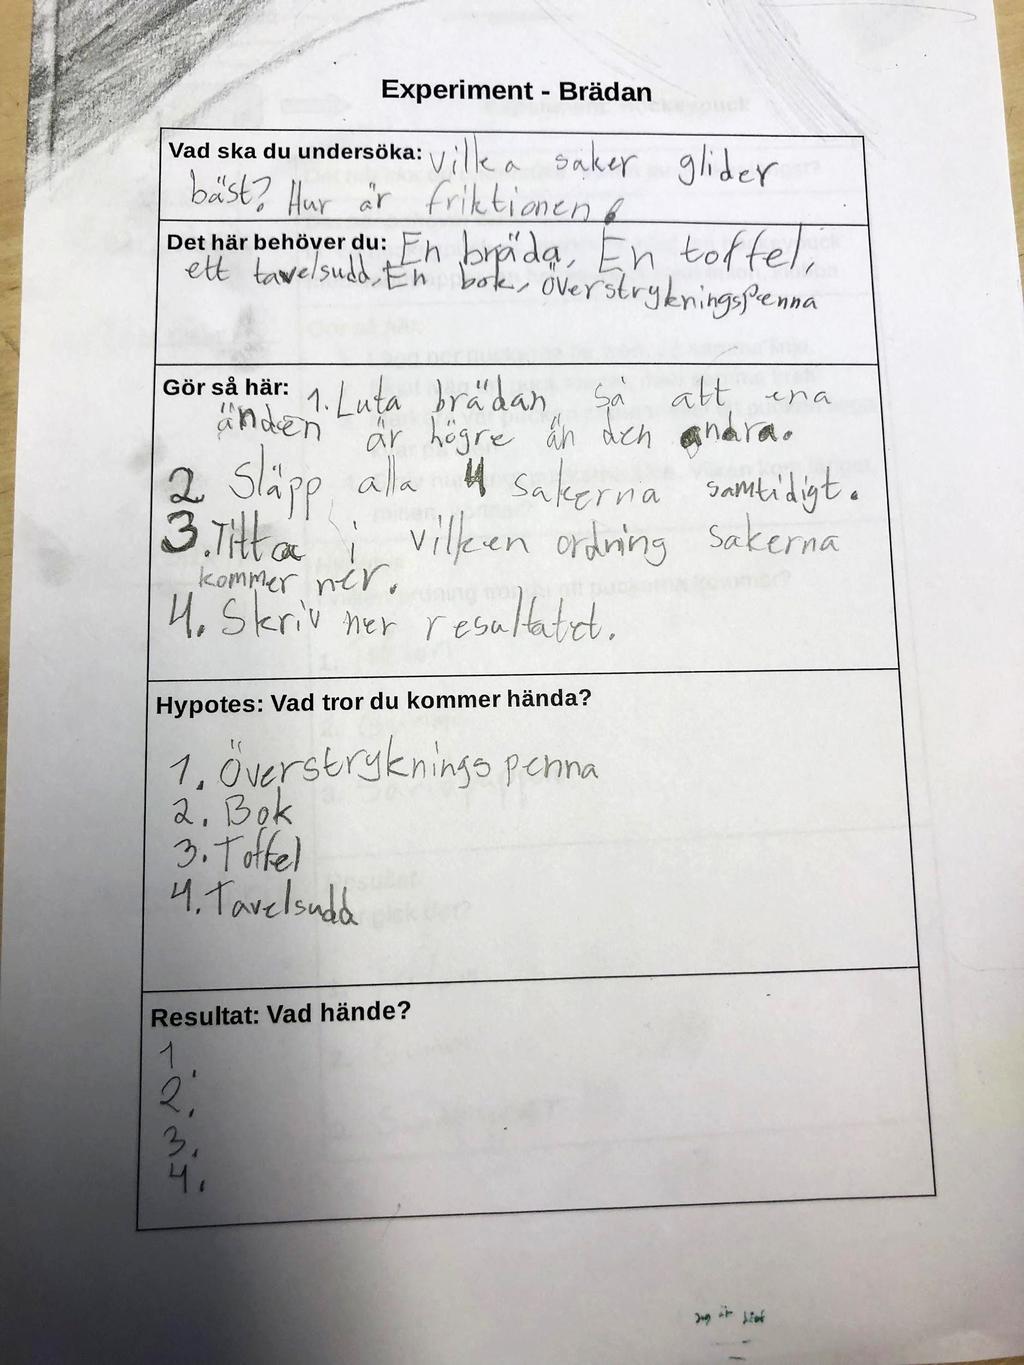 Experiment - Brädan
Vad ska du undersöka: vilka saker glider
bäst? Hur är friktionen
Det här behöver du: En bräda, En toffel,
ett tavelsudd, En bok, överstrykningspenna
Gör så här: 1. Luta brädan så att ena
änden är högre än den andra.
2 Släpp alla 4 sakerna samtidigt.
3. Titta i vilken ordning sakerna
kommer ner.
4. Skriv ner resultatet.
Hypotes: Vad tror du kommer hända?
1. Överstryknings penna
2. Bok
3. Toffel
4. Tavelsudd
Resultat: Vad hände?
1.
2.
3.
4.